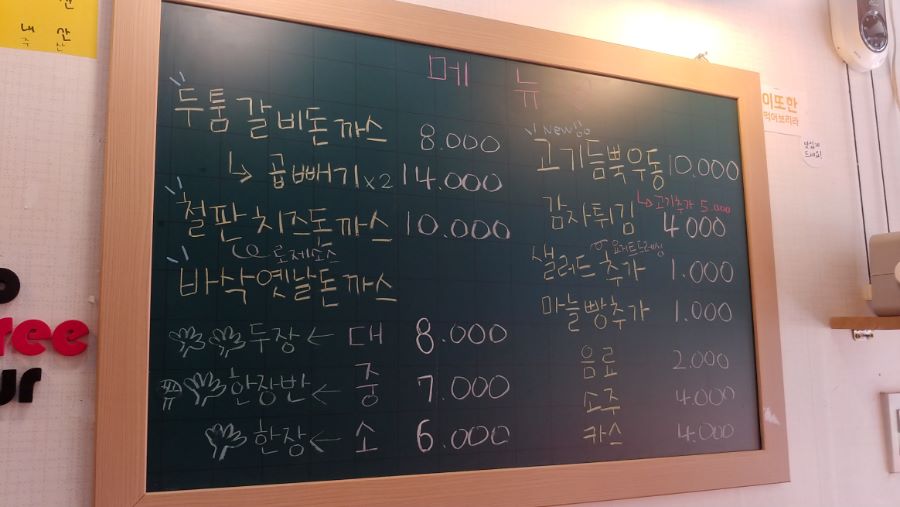 메뉴
두툼갈비돈까스 8.000
↳ 곱빼기x2 14.000
철판치즈돈까스 10.000
로제소스
바삭옛날돈까스
두장 ← 대 8.000
한장반 ← 중 7.000
한장 ← 소 6.000
New
고기듬뿍우동 10.000
↳ 고기추가 5.000
감자튀김 4000
요거트드레싱
샐러드추가 1.000
마늘빵추가 1.000
음료 2.000
소주 4.000
카스 4.000
이또한
먹어보리라
맛있게
드세요!
내
산
ree
ur